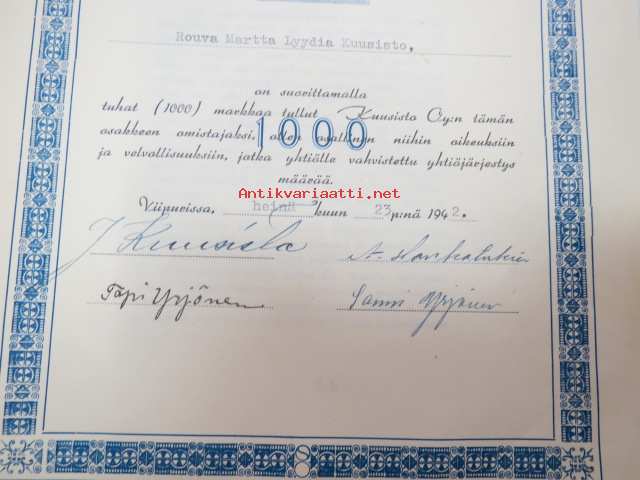 Rouva Martta Lyydia Kuusisto,
on suorittamalla
tuhat (1000) markkaa tullut Kuusisto Oy:n tämän
osakkeen omistajaksi, ollen osallinen niihin oikeuksiin
1000
ja velvollisuuksiin, jotka yhtiölle vahvistettu yhtiöjärjestys
määrää.
Antikvariaatti.net
Viipurissa, heinä kuun 23 p:nä 1942.
J Kuusisto A.
Tapi Yrjönen Sanni Yrjönen
8